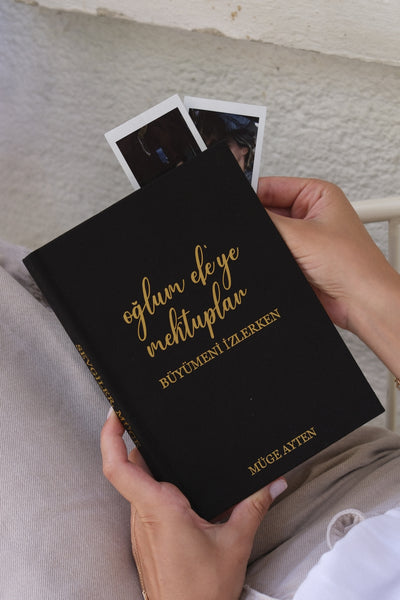 oğlum efe'ye
mektuplar
BÜYÜMENİ İZLERKEN
MÜGE AYTEN
SEVGİLER